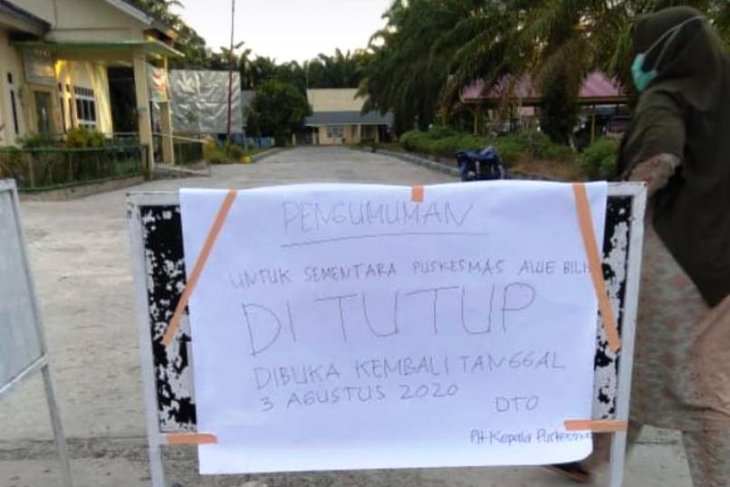 PENGUMUMAN
UNTUK SEMENTARA PUSKESMAS ALUE BILIE
DI TUTUP
DIBUKA KEMBALI TANGGAL
3 AGUSTUS 2020
DTO
Plt Kepala Puskesmas